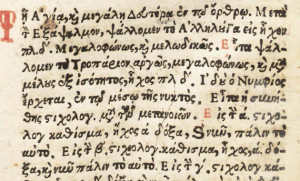 ἡ Ἁγία, κ̀ μεγάλη Δευτέρα ἐν τῷ ὄρθρῳ. Μετὰ
τ̀ Ἑξάψαλμον, ψάλλομεν τὸ Ἀλληλούϊα εἰς ἦχον
πλ. δ´. Μεγαλοφώνως, κ̀ μελωδικῶς. Εἶτα ψάλ-
λομεν τὸ Τροπάριον ἀργῶς, μεγαλοφώνως, κ̀ μ̀
μέλους ἐξ ἰσότητος, ἦχος πλ δ´. Ἰδοὺ ὁ Νυμφίος
ἔρχεται, ἐν τῷ μέσῳ τῆς νυκτός. Εἶτα ἡ συνή-
θης στιχολογ. μ̀ τῶν μετανοιῶν. Εἰς τ̀ α. στιχο-
λογ κάθισμα, ἦχος ά δόξα, κ̀ νῦν, πάλιν τὸ
αὐτό. Εἰς τ̀ β. στιχολογ. κάθισμα, ἦχος, ά. δό-
ξα, κ̀ νῦν πάλιν τὸ αὐτό. Εἰς τ̀ γ. στιχολογ. κά-